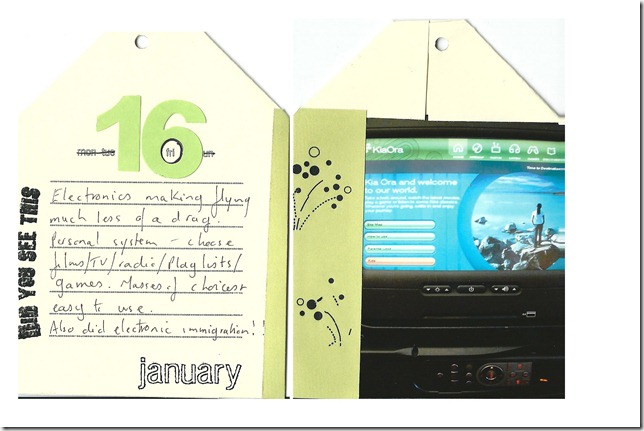 16
mon tue fri un
YOU SEE THIS
Electronics making flying
much less of a drag.
Personal system – choose
films/TV/radio/playlists/
games. Masses of choices+
easy to use.
Also did electronic immigration!!
january
KiaOra
Kia Ora and welcome
to our world.